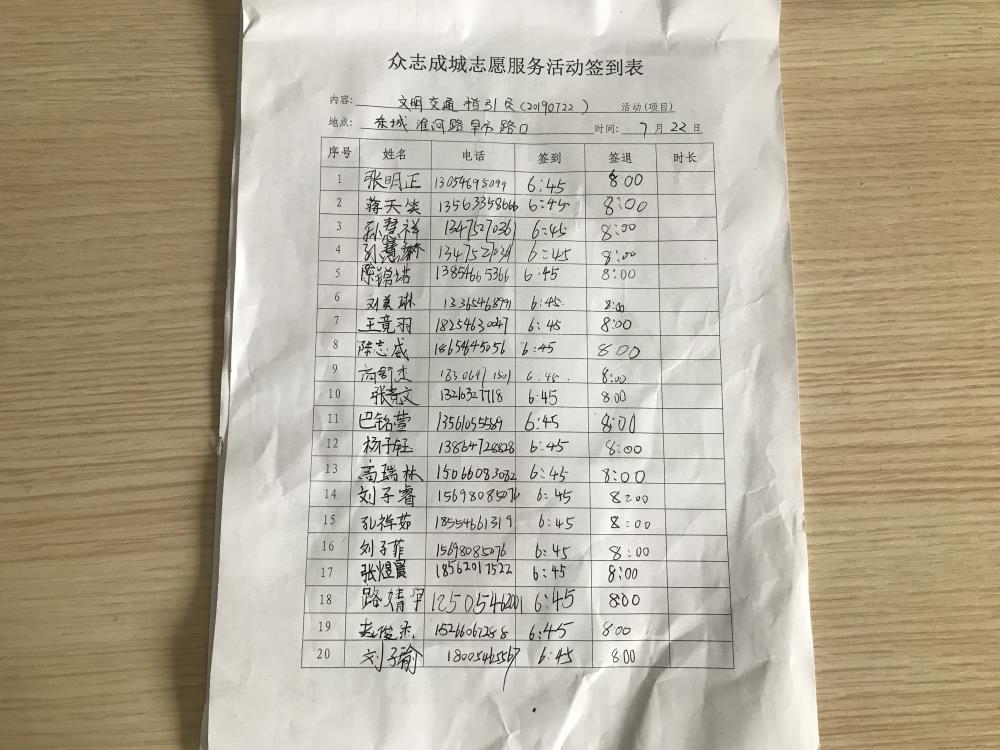 众志成城志愿服务活动签到表
内容: 文明交通指引员(20190722) 活动(项目)
地点: 东城淮河路早市路口 时间: 7月22日
序号 姓名 电话 签到 签退 时长
1 张明正 13054695099 6:45 8:00
2 蒋天笑 13563358666 6:45 8:00
3 孙慧祥 1347527036 6:45 8:00
4 刘慧 6:45 8:00
5 陈锦 13854665366 6:45 8:00
6 刘美琳 13365468991 6:45. 8:00
7 王竟羽 18254630047 6:45 8:00
8 陈志威 18654645056 6:45 8:00
9 高舒杰 6:45. 8:00
10 张亮文 13210327718 6:45 8:00
11 巴铭萱 13561055589 6:45 8:00
12 杨子钰 13864728828 6:45 8:00
13 高瑞林 15066083082 6:45 8:00
14 刘子睿 15698085076 6:45 8:00
15 孔祥茹 18554661319 6:45 8:00
16 刘子菲 15698085076 6:45 8:00
17 张煜宸 18562017522 6:45 8:00
18 路婧 6:45 8:00
19 赵俊杰 15266067288 6:45 8:00
20 刘子瑜 18005465567 6:45 8:00